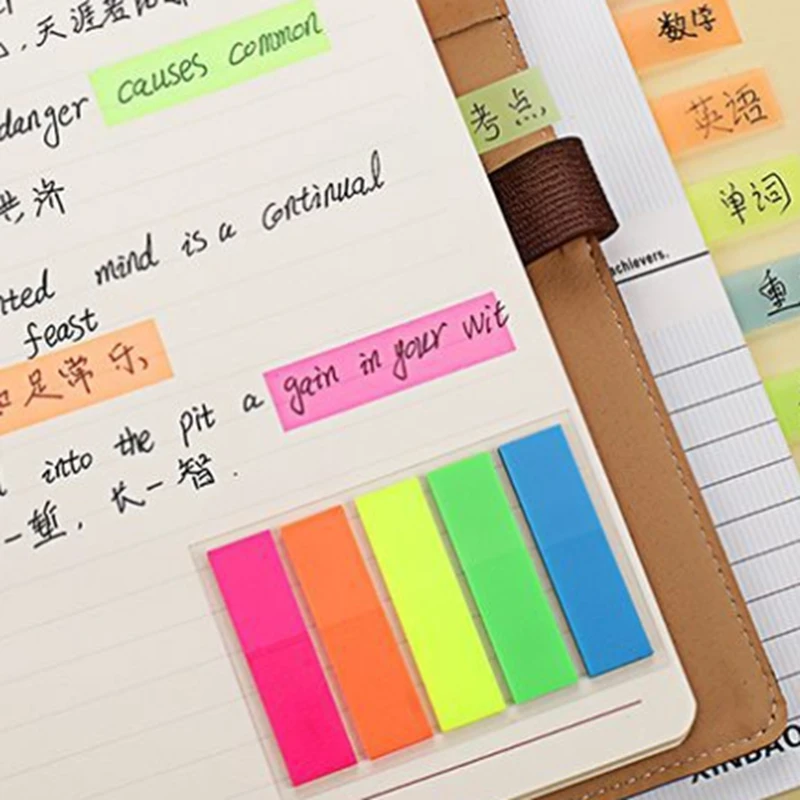 ，天涯若比
danger causes common
共济
mind is a continual
feast
足常乐
into the pit a gain in your wit
一堑，长一智.
考点
数学
英语
单词
重
achievers.
XINBAO